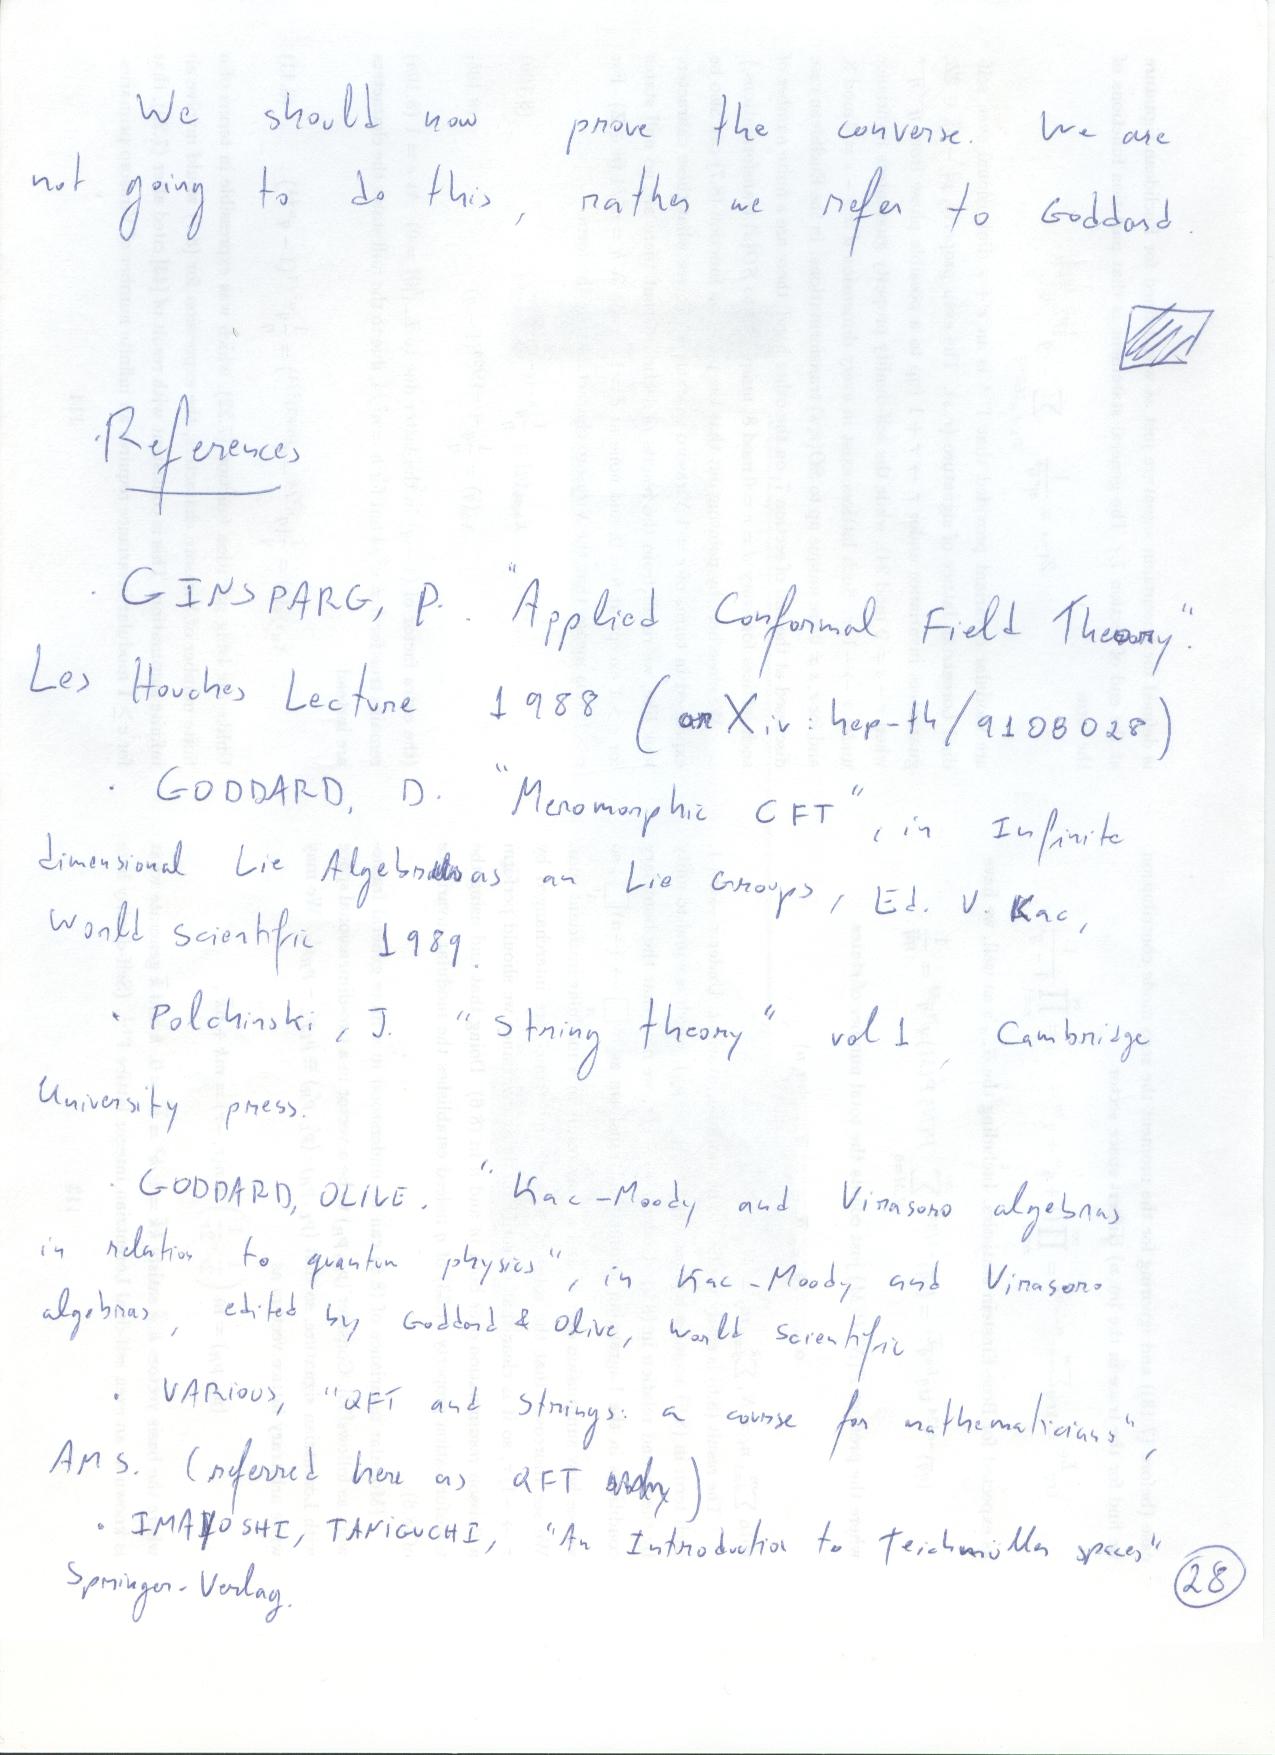 We should now prove the converse. We are
not going to do this, rather we refer to Goddard.
References
· GINSPARG, P. "Applied Conformal Field Theory".
Les Houches Lecture 1988 (arXiv: hep-th/9108028)
· GODDARD, D. "Meromorphic CFT", in Infinite
dimensional Lie Algebras an Lie Groups, Ed. V. Kac,
World Scientific 1989.
· Polchinski, J. "String theory" vol 1, Cambridge
University press.
· GODDARD, OLIVE. "Kac-Moody and Virasoro algebras
in relation to quantum physics", in Kac-Moody and Virasoro
algebras, edited by Goddard & Olive, World Scientific
· VARIOUS, "QFT and Strings: a course for mathematicians",
AMS. (referred here as QFT)
· IMAYOSHI, TANIGUCHI, "An Introduction to Teichmüller spaces"
Springer-Verlag.
28